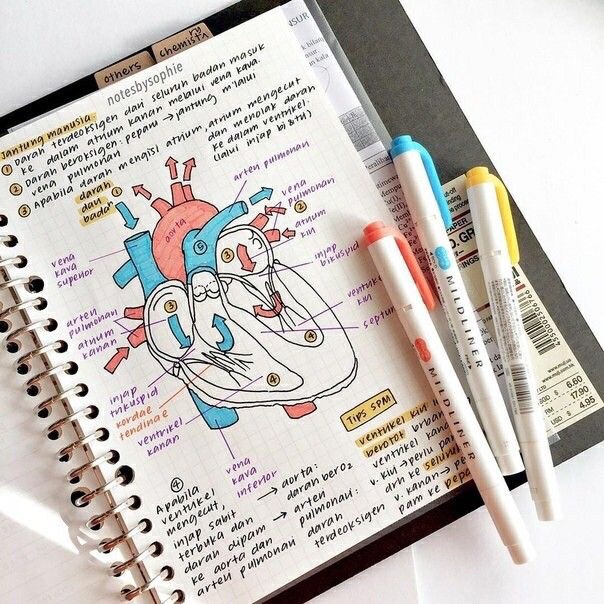 others
chemistry
notesbysophie
jantung manusia.
① Darah terdeoksigen dari seluruh badan masuk
ke dalam atrium kanan melalui vena kava.
② Darah beroksigen: pepam → jantung m'lalui
vena pulmonari
③ Apabila darah mengisi atrium, atrium mengecut
dan menolak darah
ke dalam ventrikel.
(lalui injap bi & tri)
darah
dari
badan
①
arteri pulmonari
vena
pulmonari
②
atrium
kiri
aorta
⑤
③
injap
bikuspid
vena
kava
superior
③
ventrikel
kiri
septum
arteri
pulmonari
atrium
kanan
④
④
injap
trikuspid
kordae
tendinae
ventrikel
kanan
vena
kava
inferior
Tips SPM
ventrikel kiri
berotot
ventrikel kanan
v. kiri → perlu pam
drh ke seluruh
v. kanan →
pam ke
④
Apabila
ventrikel
mengecut,
injap sabit
terbuka dan
darah dipam
ke aorta dan
arteri pulmonari
→ aorta:
darah berO2
→ arteri
pulmonari:
darah
terdeoksigen
MILDLINER
MILDLINER
6.60
RM 17.90
USD 4.95